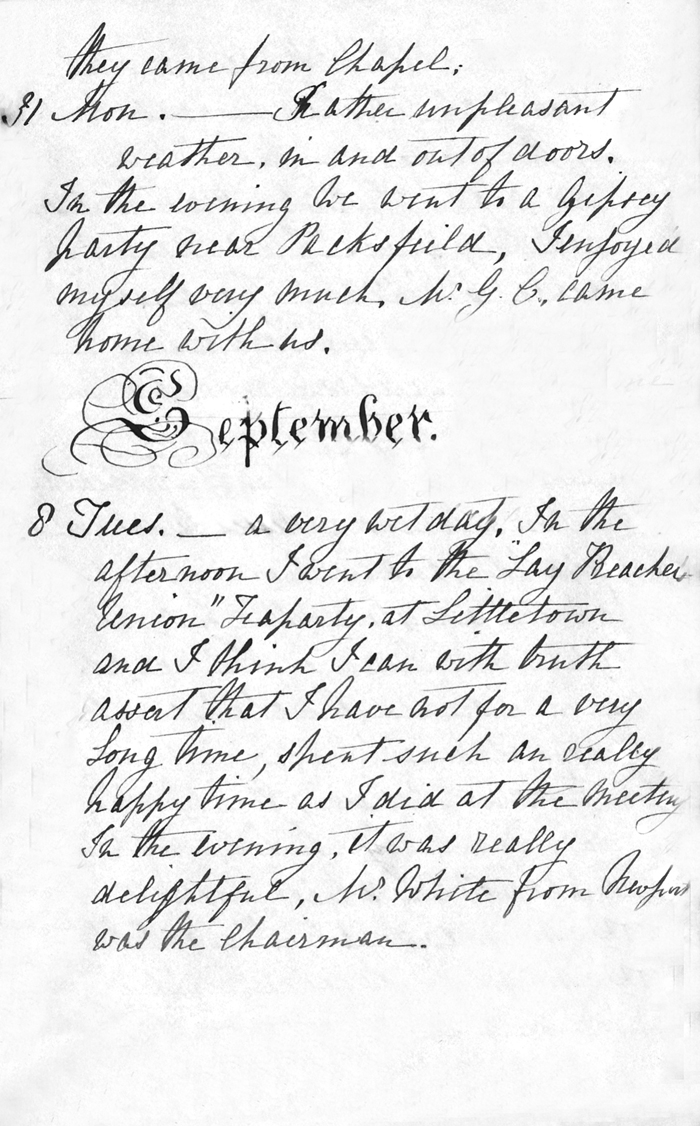 they came from Chapel;
31 Mon. — Rather unpleasant
weather, in and out of doors.
In the evening we went to a Gipsey
party near Packsfield, I enjoyed
myself very much, Mr G. C., came
home with us.
September.
8 Tues. — a very wet day. In the
afternoon I went to the "Lay Preacher
Union" Teaparty, at Littletown
and I think I can with truth
assert that I have not for a very
long time, spent such an really
happy time as I did at the meeting
In the evening, it was really
delightful, Mr. White from Newport
was the Chairman.